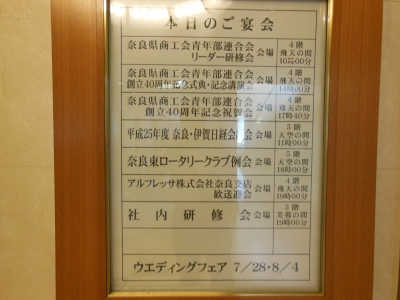 本日のご宴会
奈良県商工会青年部連合会
リーダー研修会 会場 4階 飛天の間 10時00分
奈良県商工会青年部連合会
創立40周年記念式典・記念講演会 会場 4階 飛天の間 14時00分
奈良県商工会青年部連合会
創立40周年記念祝賀会 会場 4階 飛天の間 17時40分
平成25年度 奈良・伊賀日経会総会 会場 5階 天空の間 11時00分
奈良東ロータリークラブ例会 会場 5階 天空の間 18時00分
アルフレッサ株式会社奈良支店
歓送迎会 会場 4階 飛天の間 19時00分
社内研修会 会場 5階 芙蓉の間 19時00分
ウエディングフェア 7/28・8/4